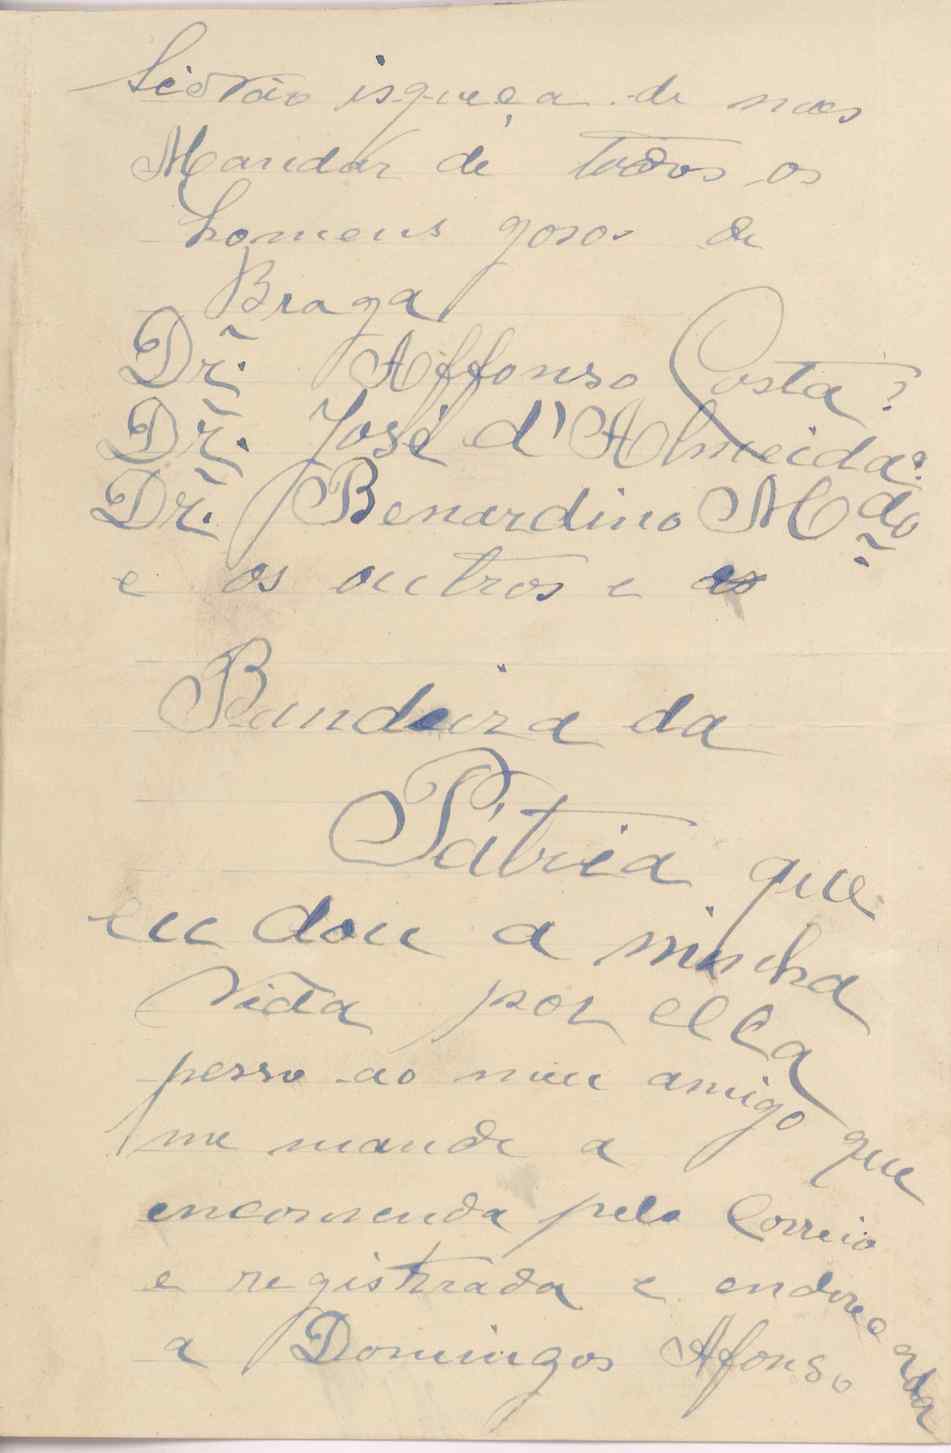 não isqueça de nos
Mandar de todos os
homens gosos de
Braga
Dr. Affonso Costa?
Dr. José d'Almeida?
Dr. Benardino Mdo
e os outros e as
Bandeira da
Pátria que
eu dou a minha
vida por ella
pesso ao meu amigo que
me mande a
encomenda pelo Correio
e registrada e endereçada
a Domingos Afonso